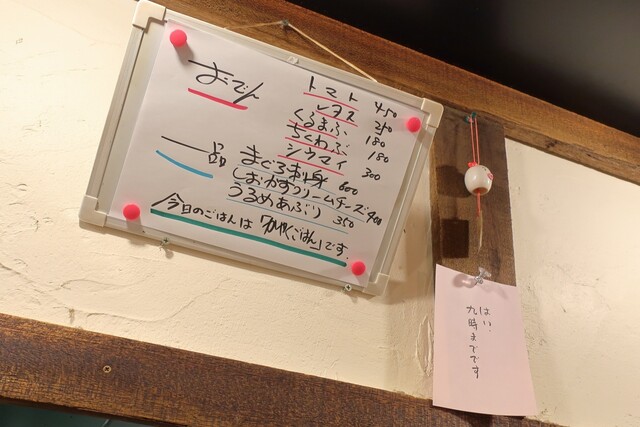 おでん
トマト 450
レタス 250
くるまふ 180
ちくわぶ 180
シウマイ 300
一品
まぐろ刺身 600
しおかすクリームチーズ 400
うるめあぶり 350
今日のごはんは「かやくごはん」です。
はい、
九時までです